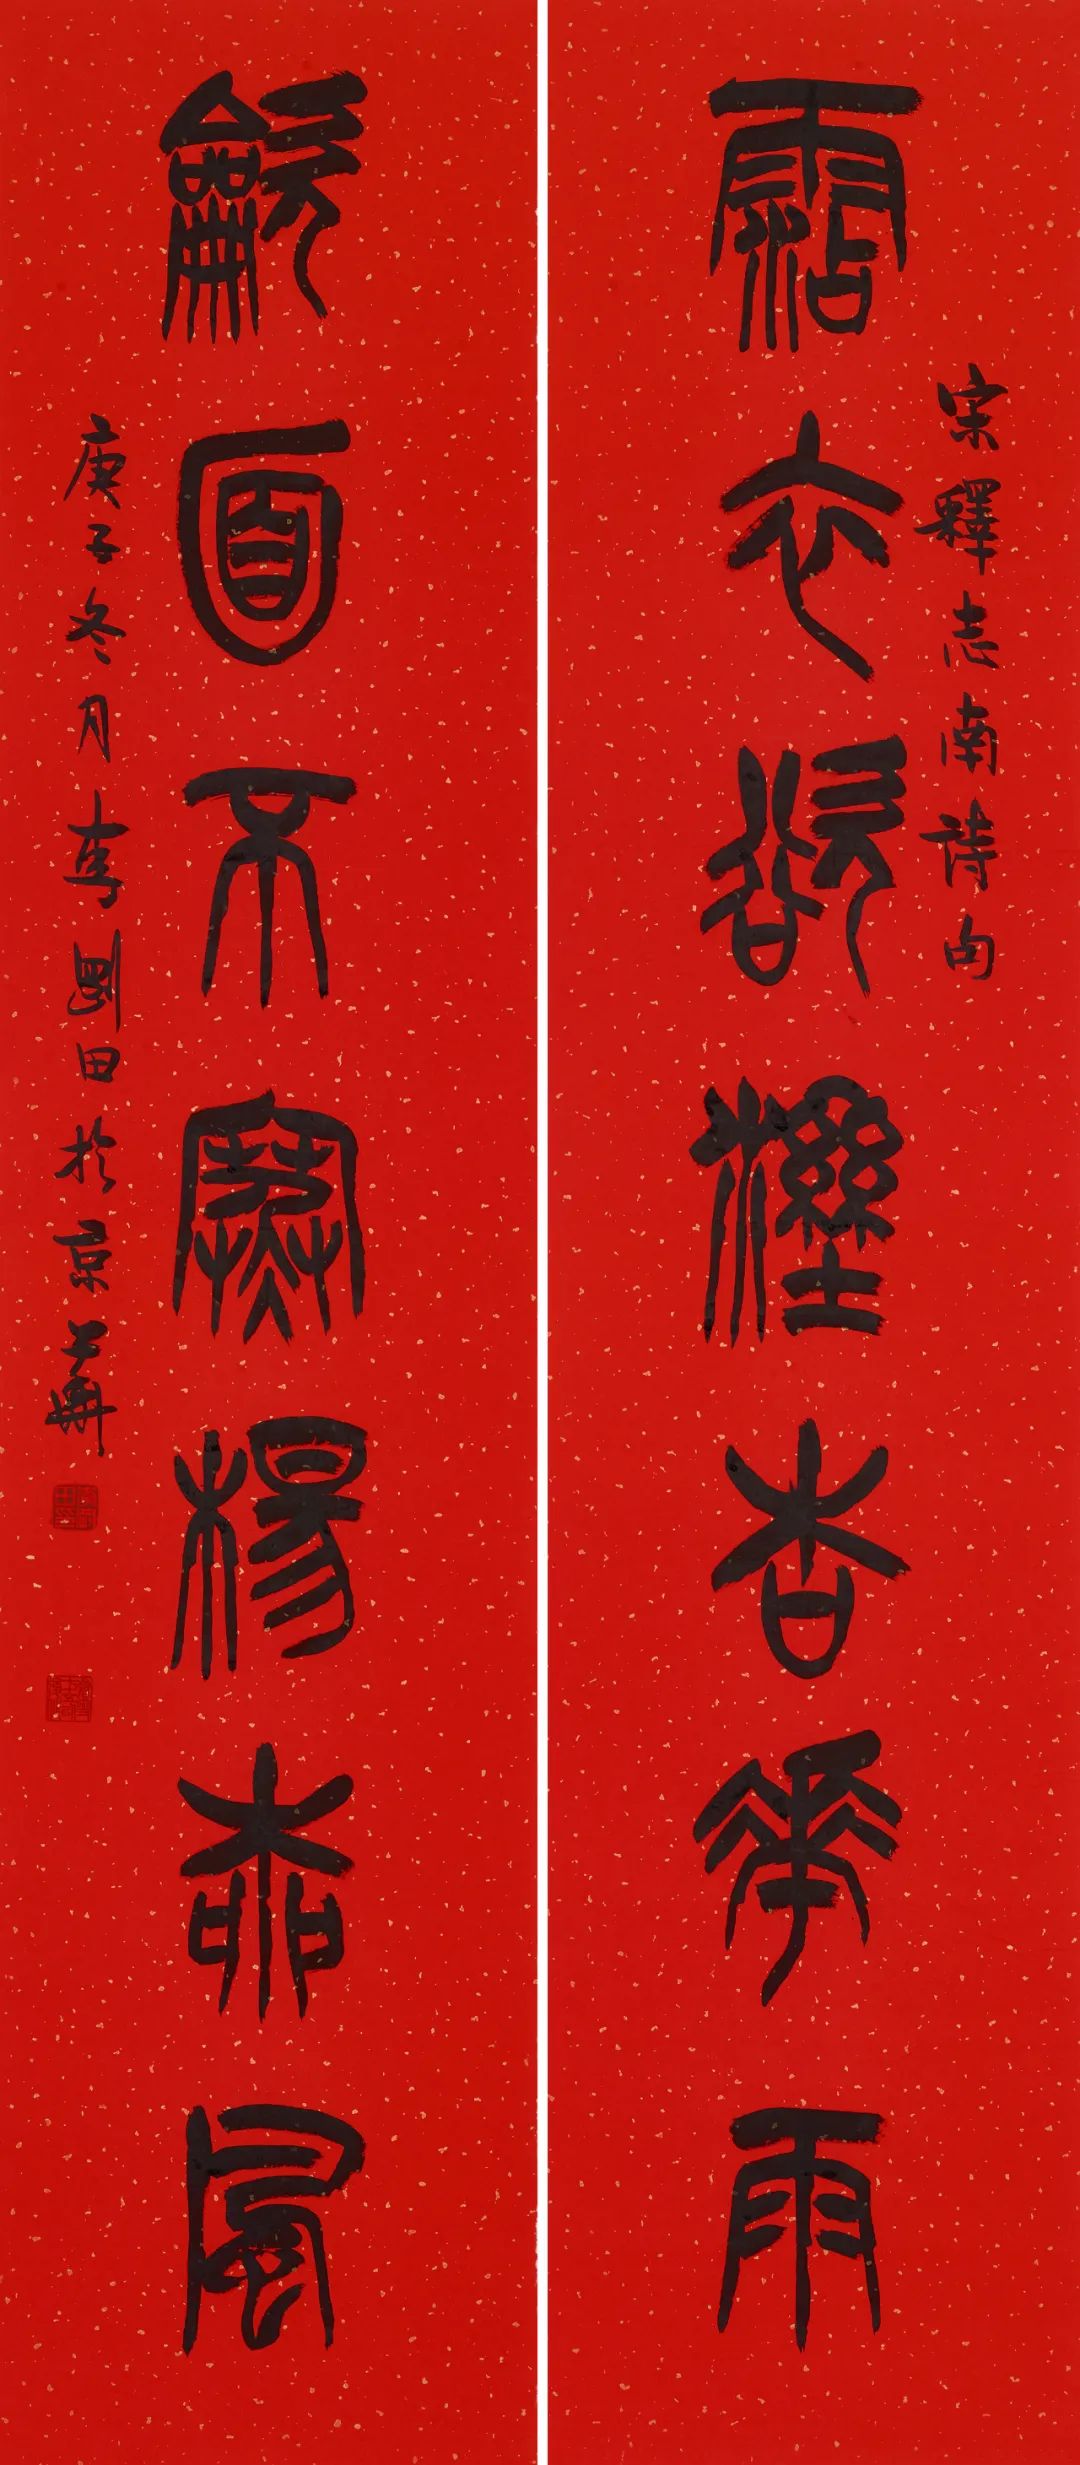 宋釋志南詩句
霑衣欲溼杏華雨
龡面不寒楊桺風
庚子冬月李剛田於京華